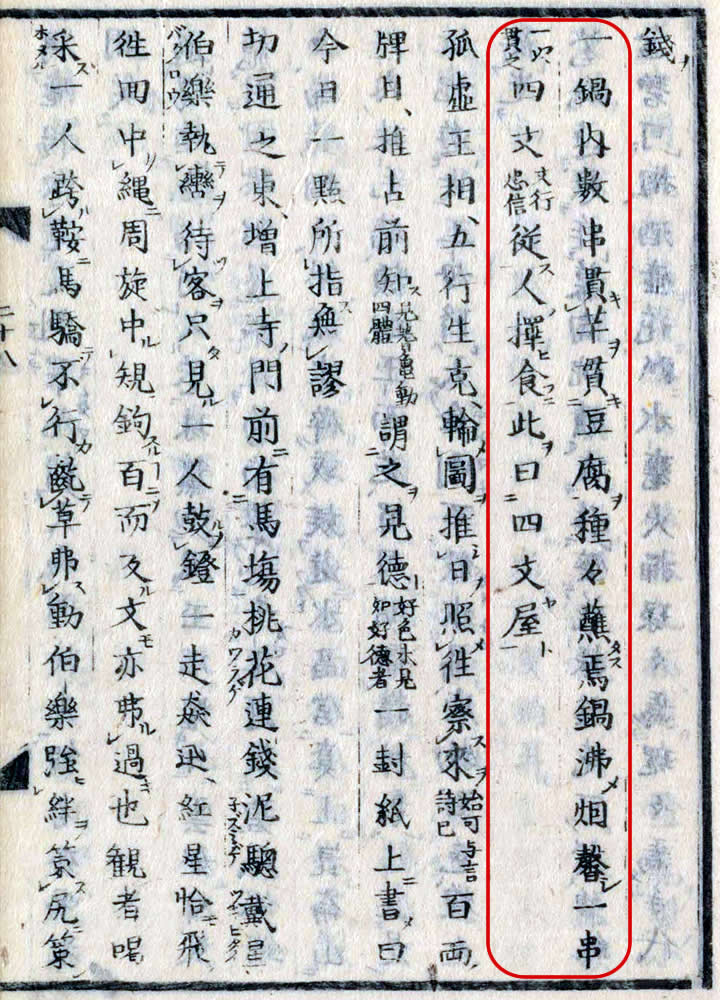 錢
一鍋内数串貫芋貫豆腐種々蘸焉鍋沸烟馨一串
四文文行忠信従人擇食此曰四文屋
孤虚王相、五行生克、輪圖推日照往察來始可与言詩已百両
牌曰、推占前知四體謂之見德好色未見如好德者一封紙上書曰
今日一點所指無謬
切通之東、增上寺門前有馬塲桃花連錢泥驄戴星
伯樂執轡待客只見一人鼓鐙一走焱迅、紅星恰飛
徃回中縄周旋中規鉤百而反文亦弗過也観者喝
采一人跨鞍馬驕不行齕草弗動伯樂強絆策尻策
二十八